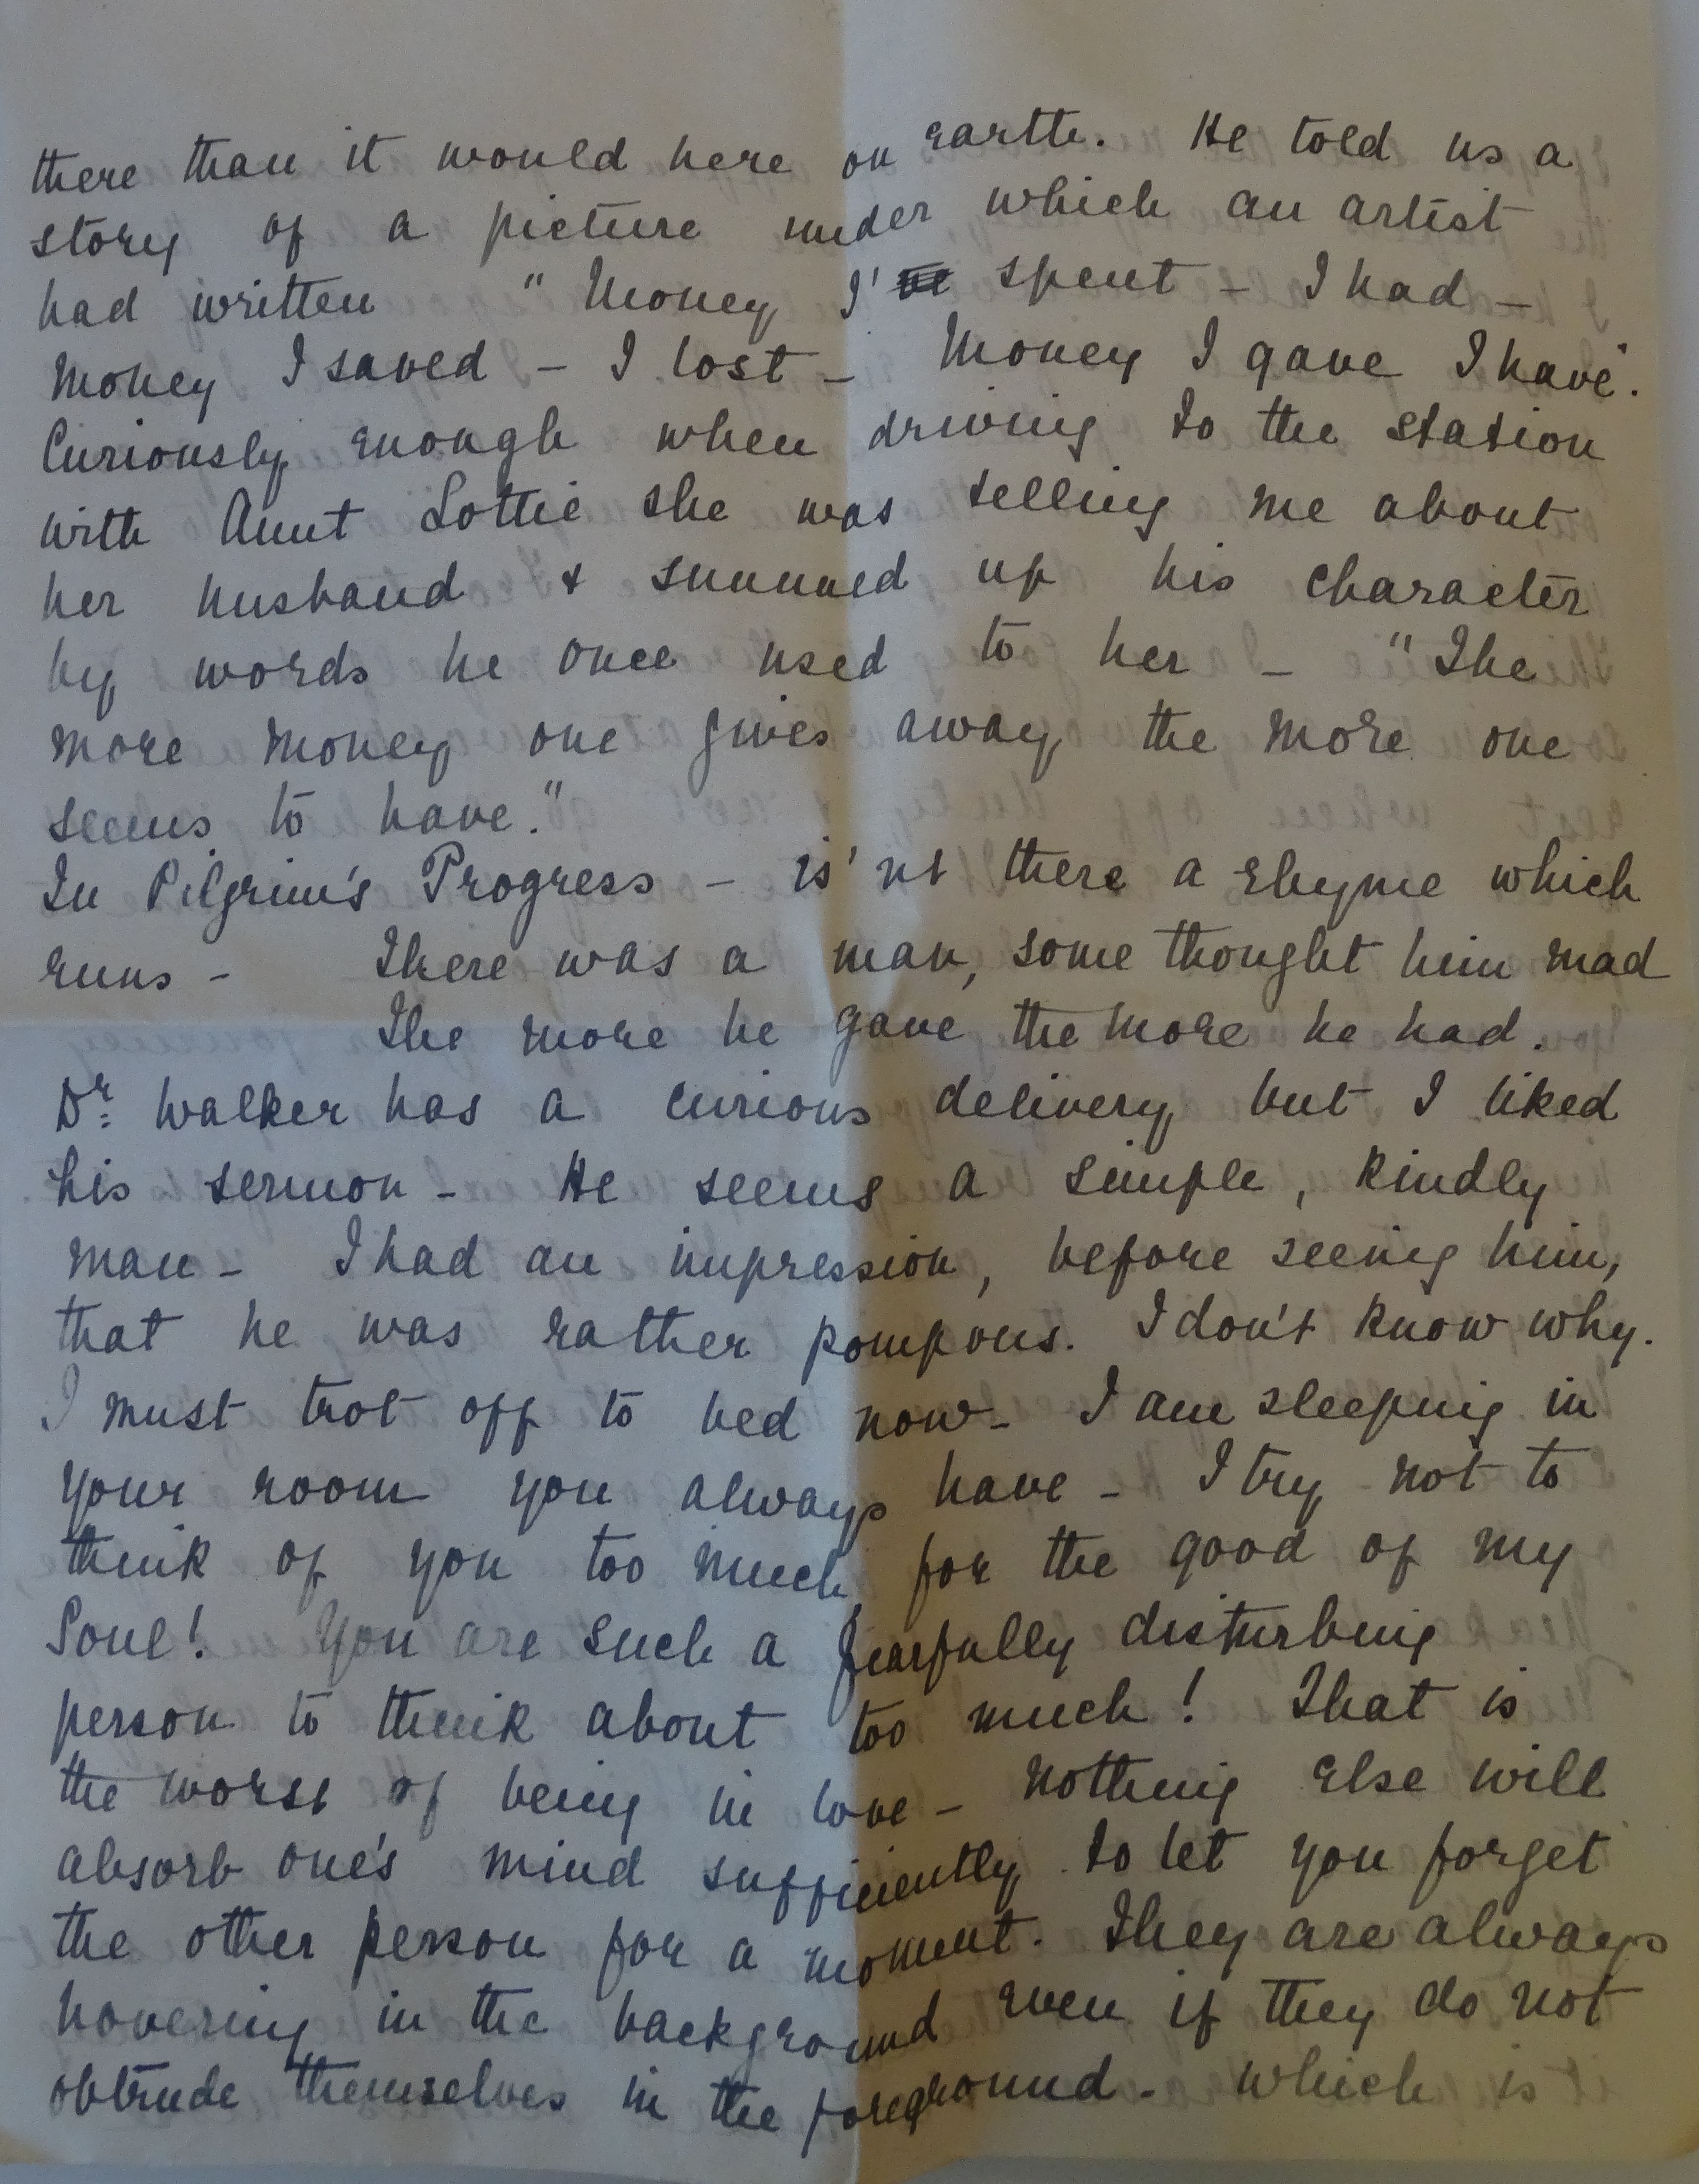 there than it would here on earth. He told us a
story of a picture under which an artist
had written "Money I' spent – I had –
Money I saved – I lost – Money I gave I have".
Curiously enough when driving to the station
with Aunt Lottie she was telling me about
her husband & summed up his character
by words he once used to her – "The
more money one gives away the more one
seems to have."
In Pilgrim's Progress – is'nt there a rhyme which
runs – There was a man, some thought him mad
The more he gave the more he had.
Dr. Walker has a curious delivery but I liked
his sermon – He seems a simple, kindly
man – I had an impression, before seeing him,
that he was rather pompous. I don't know why.
I must trot off to bed now – I am sleeping in
your room you always have – I try not to
think of you too much for the good of my
Soul! You are such a fearfully disturbing
person to think about too much! That is
the worst of being in love – nothing else will
absorb one's mind sufficiently to let you forget
the other person for a moment. They are always
hovering in the background even if they do not
obtrude themselves in the foreground – which is